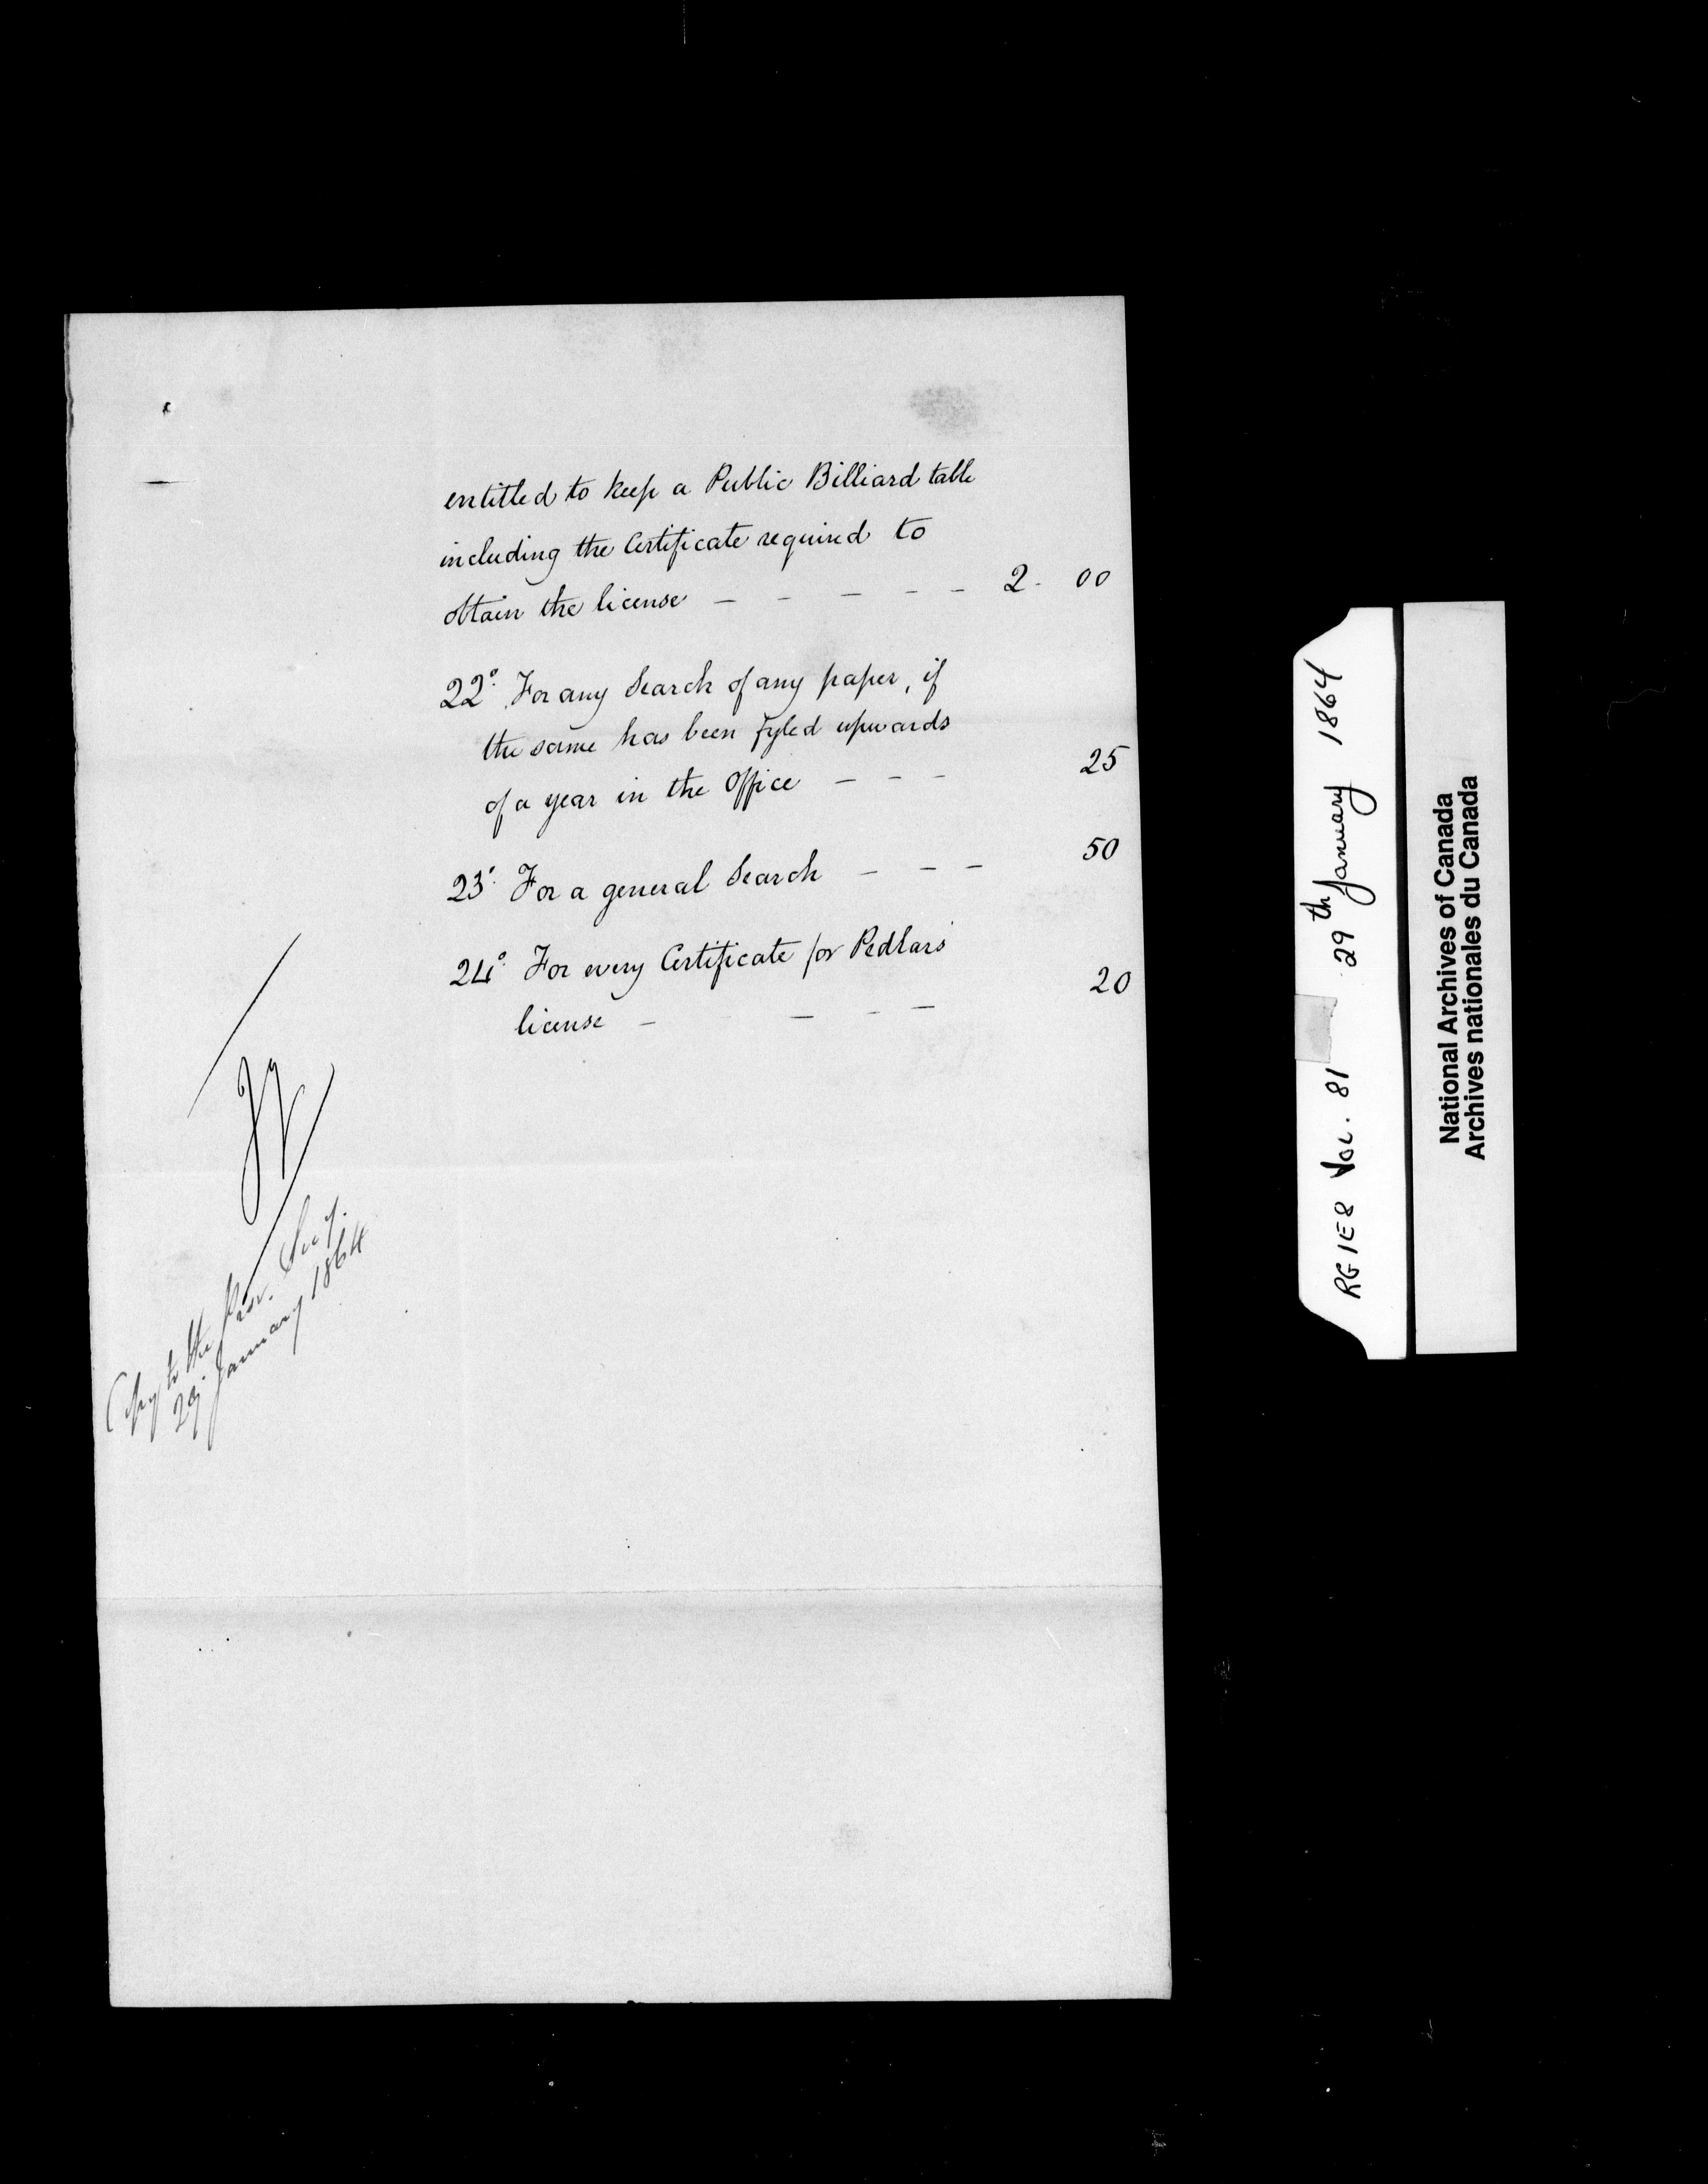 entitled to keep a Public Billiard table
including the Certificate required to
obtain the license — — — — — 2. 00
22° For any Search of any paper, if
the same has been fyled upwards
of a year in the Office — — — 25
23° For a general Search — — — 50
24° For every Certificate for Pedlars'
license — — — — 20
Copy to the Prov. Secy.
29. January 1864
RG1E8 Vol. 81 29th January 1864
National Archives of Canada
Archives nationales du Canada